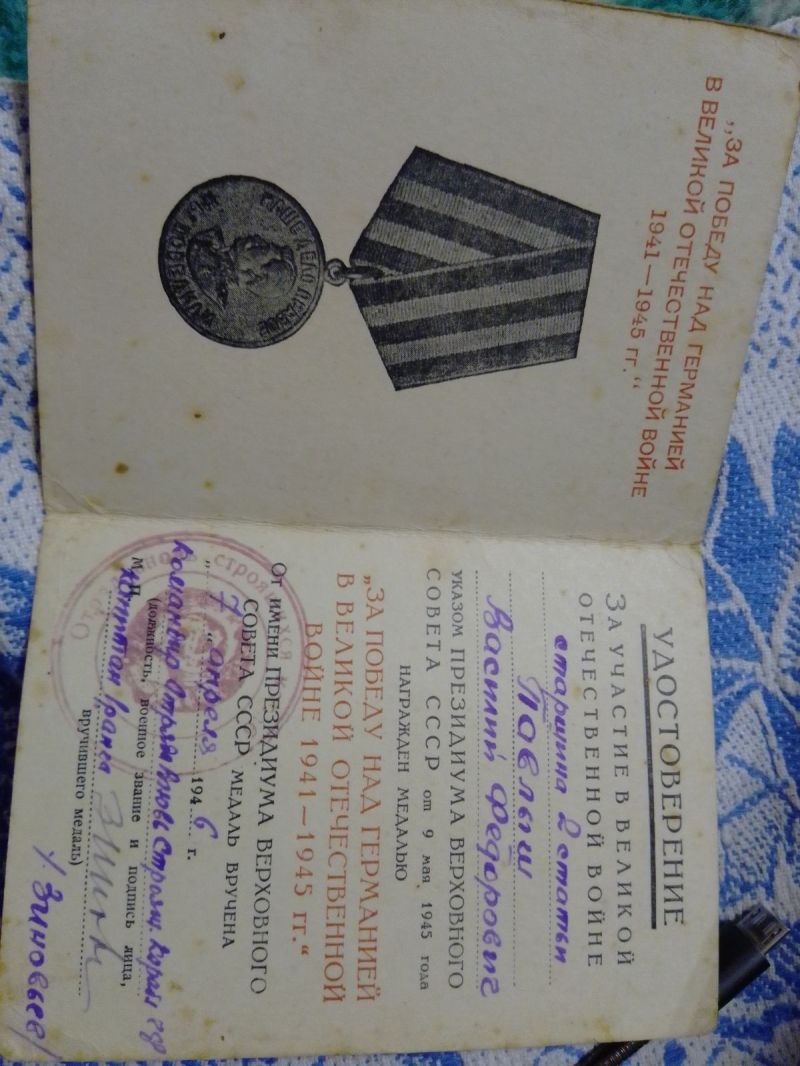 „ЗА ПОБЕДУ НАД ГЕРМАНИЕЙ
В ВЕЛИКОЙ ОТЕЧЕСТВЕННОЙ ВОЙНЕ
1941—1945 гг.“
НАШЕ ДЕЛО ПРАВОЕ
МЫ ПОБЕДИЛИ
УДОСТОВЕРЕНИЕ
ЗА УЧАСТИЕ В ВЕЛИКОЙ
ОТЕЧЕСТВЕННОЙ ВОЙНЕ
старшина 2 статьи
Павлыш
Василий Федорович
УКАЗОМ ПРЕЗИДИУМА ВЕРХОВНОГО
СОВЕТА СССР от 9 мая 1945 года
НАГРАЖДЕН МЕДАЛЬЮ
„ЗА ПОБЕДУ НАД ГЕРМАНИЕЙ
В ВЕЛИКОЙ ОТЕЧЕСТВЕННОЙ
ВОЙНЕ 1941—1945 гг.“
От ИМЕНИ ПРЕЗИДИУМА ВЕРХОВНОГО
СОВЕТА СССР МЕДАЛЬ ВРУЧЕНА
„ 7 “ апреля 1946 г.
Командир строящ.
М. П. (должность, военное звание и подпись лица,
капитан ранга
вручившего медаль)
/Зиновьев/